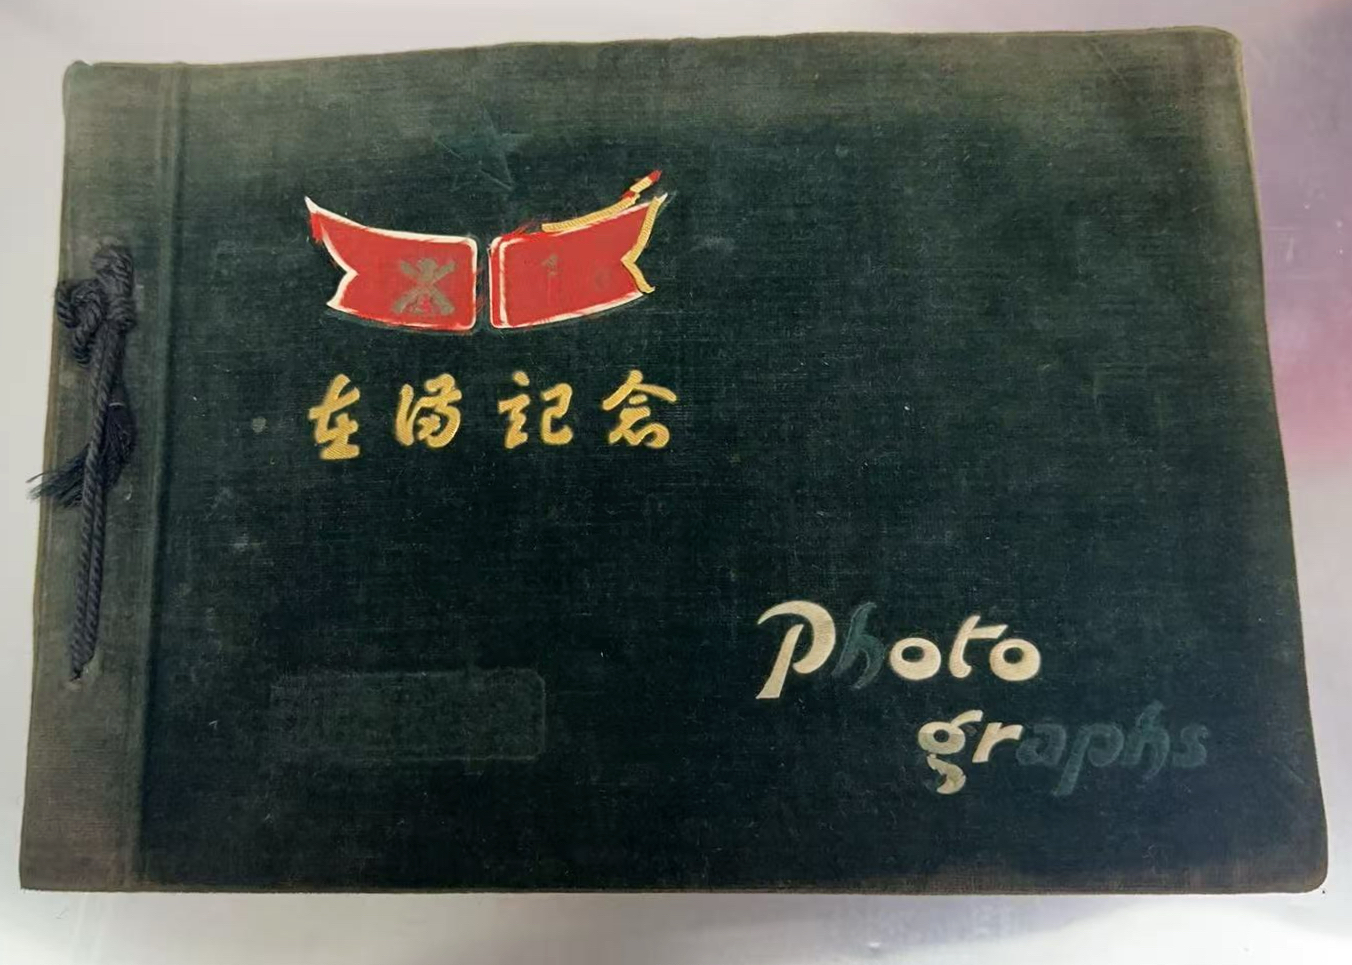 1
在満記念
Photo
graphs